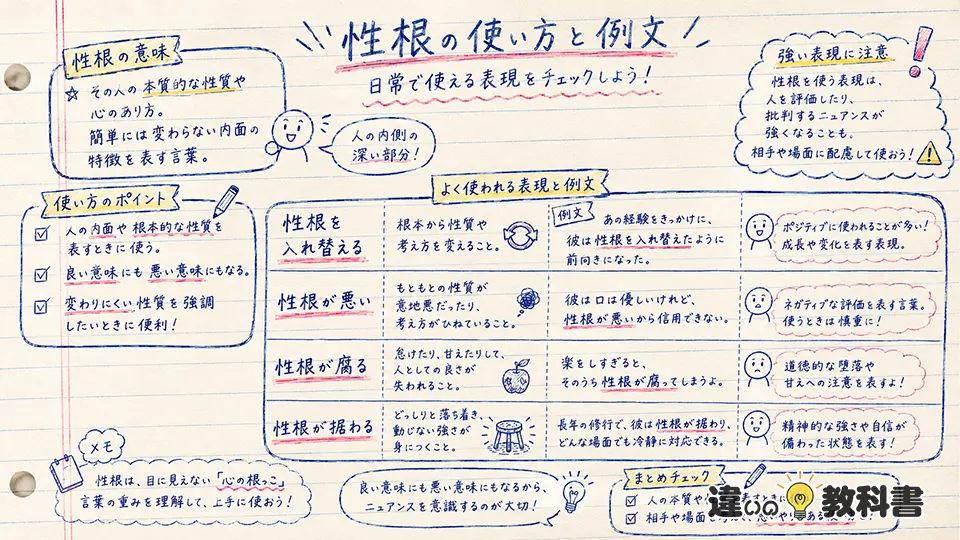 性根の使い方と例文
日常で使える表現をチェックしよう！
性根の意味
☆ その人の本質的な性質や
心のあり方。
簡単には変わらない内面の
特徴を表す言葉。
人の内側の
深い部分！
強い表現に注意
性根を使う表現は、
人を評価したり、
批判するニュアンスが
強くなることも。
相手や場面に配慮して使おう！
使い方のポイント
人の内面や根本的な性質を
表すときに使う。
良い意味にも悪い意味にもなる。
変わりにくい性質を強調
したいときに便利！
よく使われる表現と例文
性根を
入れ替える
根本から性質や
考え方を変えること。
例文
あの経験をきっかけに、
彼は性根を入れ替えたように
前向きになった。
ポジティブに使われることが多い！
成長や変化を表す表現。
性根が悪い
もともとの性質が
意地悪だったり、
考え方がひねていること。
彼は口は優しいけれど、
性根が悪いから信用できない。
ネガティブな評価を表す言葉。
使うときは慎重に！
性根が腐る
怠けたり、甘えたりして、
人としての良さが
失われること。
楽をしすぎると、
そのうち性根が腐ってしまうよ。
道徳的な堕落や
甘えへの注意を表すよ！
性根が据わる
どっしりと落ち着き、
動じない強さが
身につくこと。
長年の修行で、彼は性根が据わり、
どんな場面でも冷静に対応できる。
精神的な強さや自信が
備わった状態を表す！
メモ
性根は、目に見えない「心の根っこ」
言葉の重みを理解して、上手に使おう！
良い意味にも悪い意味にもなるから、
ニュアンスを意識するのが大切！
まとめチェック
人の本質や
相手や場面を
違いの教科書